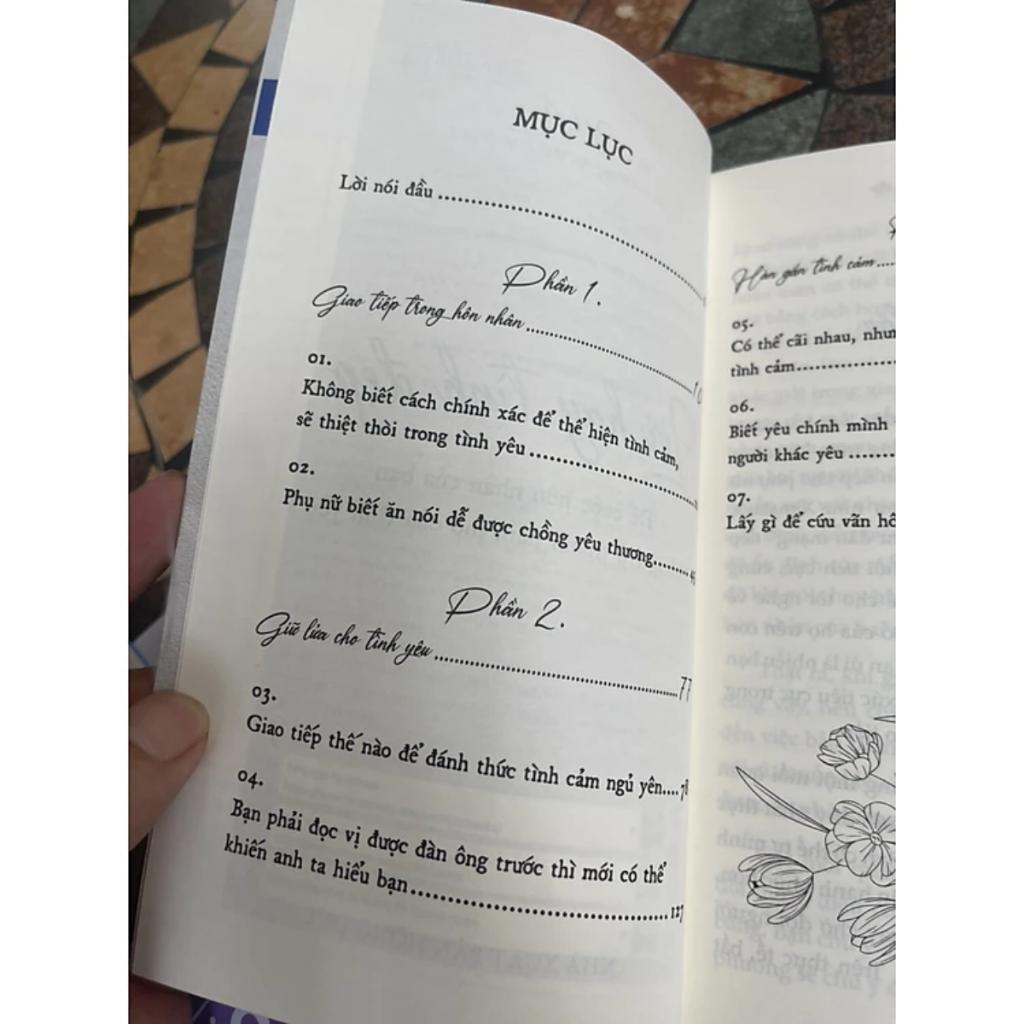 MỤC LỤC
Lời nói đầu
Phần 1.
Giao tiếp trong hôn nhân 10
01.
Không biết cách chính xác để thể hiện tình cảm,
sẽ thiệt thòi trong tình yêu
02.
Phụ nữ biết ăn nói dễ được chồng yêu thương
Phần 2.
Giữ lửa cho tình yêu 77
03.
Giao tiếp thế nào để đánh thức tình cảm ngủ yên....78
04.
Bạn phải đọc vị được đàn ông trước thì mới có thể
khiến anh ta hiểu bạn 127
Hàn gắn tình cảm
05.
Có thể cãi nhau, như
tình cảm
06.
Biết yêu chính mình
người khác yêu
07.
Lấy gì để cứu vãn hô